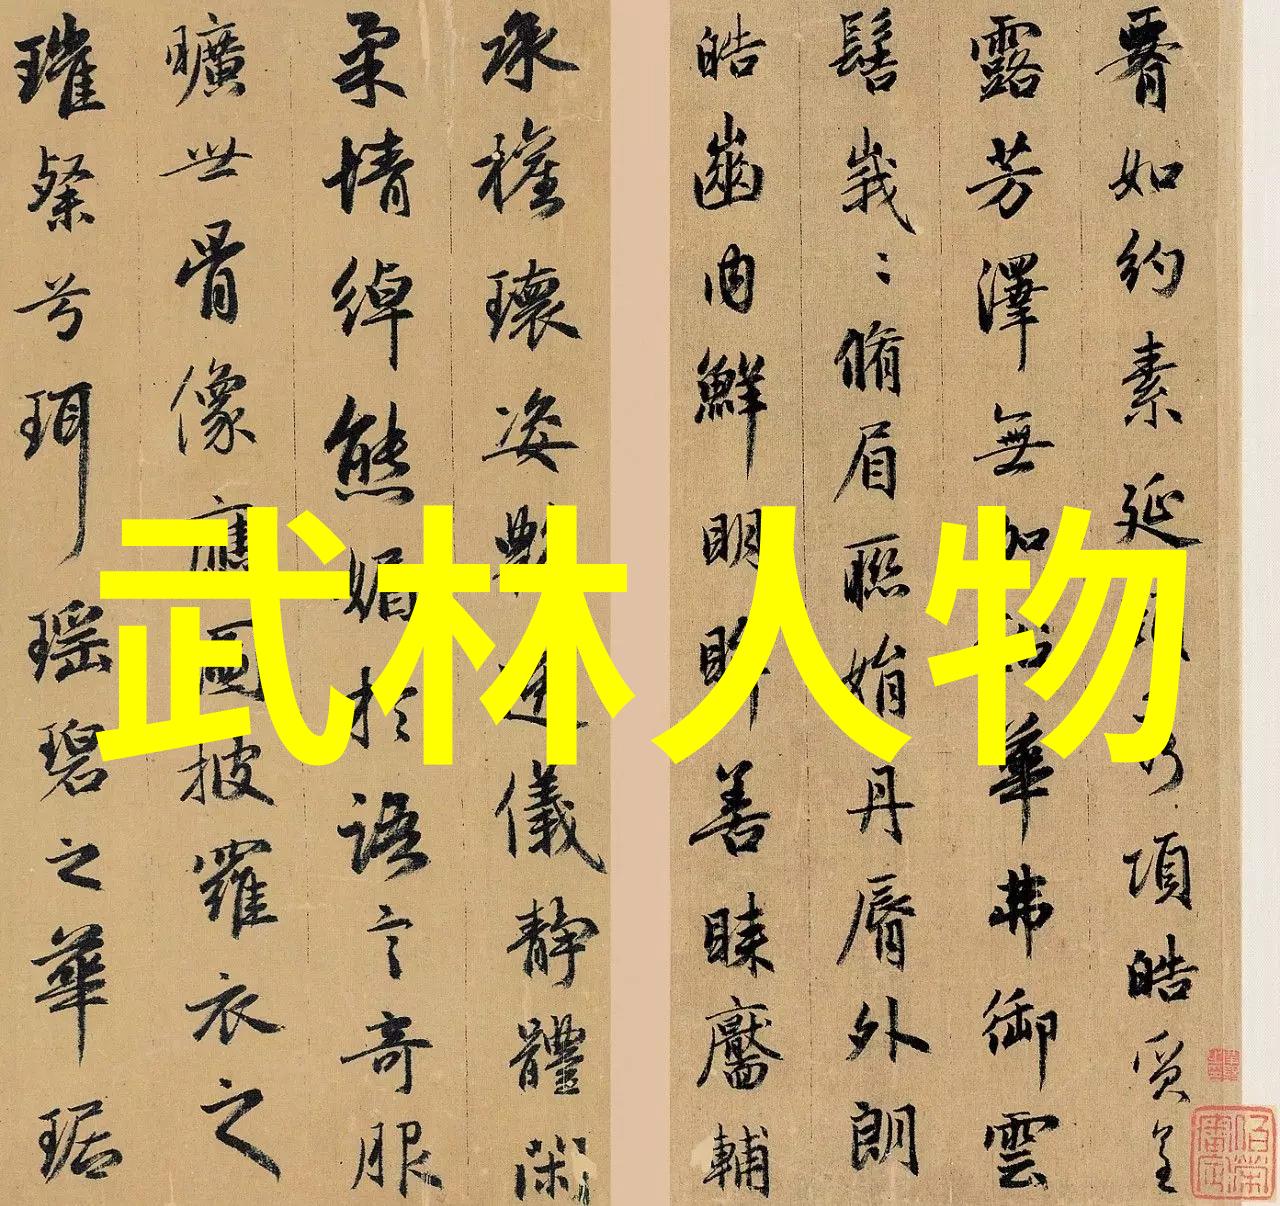 腰如約素延頸秀項皓質呈
露芳澤無加鉛華弗御雲
髻峩〻脩眉聯娟丹脣外朗
皓齒内鮮明眸善睞靨輔
承權瓌姿豔逸儀靜體閑
柔情綽態媚於語言奇服
曠世骨像應圖披羅衣之
璀粲兮珥瑶碧之華琚
武林人物